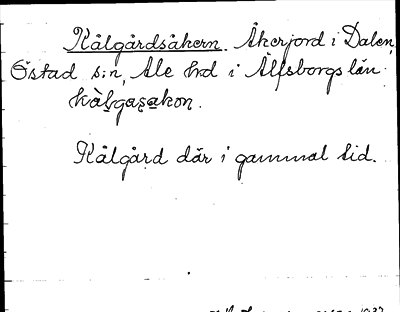 Kålgårdsåkern. Åkerjord i Dalen,
Östad s:n, Ale hd i Älfsborgs län.
kålgasakon.
Kålgård där i gammal tid.